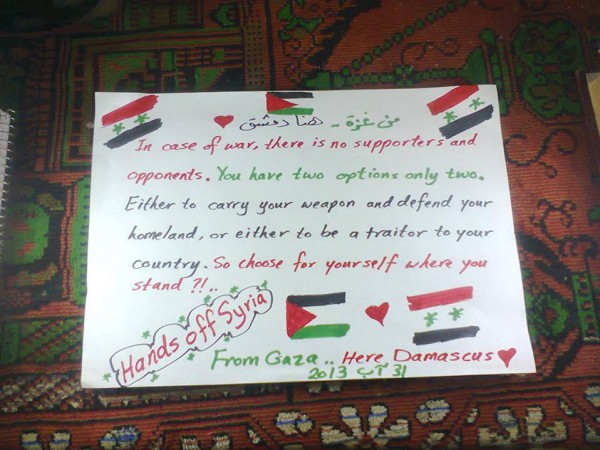 من غزة - هنا دمشق
In case of war, there is no supporters and
opponents. You have two options only two.
Either to carry your weapon and defend your
homeland, or either to be a traitor to your
country. So choose for yourself where you
stand ?!..
Hands off Syria
From Gaza .. Here Damascus
31 آب 2013